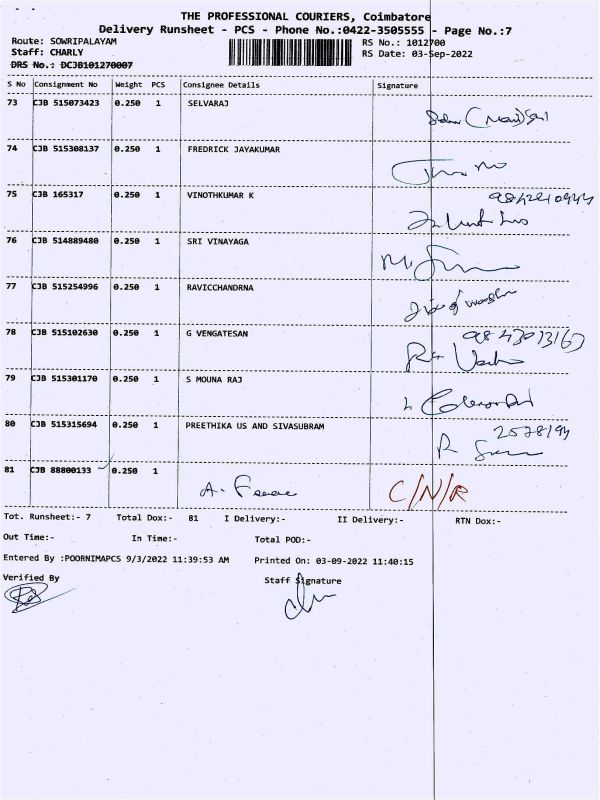 THE PROFESSIONAL COURIERS, Coimbatore
Delivery Runsheet - PCS - Phone No.:0422-3505555 - Page No.:7
Route: SOWRIPALAYAM RS No.: 1012700
Staff: CHARLY RS Date: 03-Sep-2022
DRS No.: DCJB101270007
S No Consignment No Weight PCS Consignee Details Signature
73 CJB 515073423 0.250 1 SELVARAJ
74 CJB 515308137 0.250 1 FREDRICK JAYAKUMAR
75 CJB 165317 0.250 1 VINOTHKUMAR K
76 CJB 514889480 0.250 1 SRI VINAYAGA
77 CJB 515254996 0.250 1 RAVICCHANDRNA
78 CJB 515102630 0.250 1 G VENGATESAN
79 CJB 515301170 0.250 1 S MOUNA RAJ
80 CJB 515315694 0.250 1 PREETHIKA US AND SIVASUBRAM
81 CJB 88800133 0.250 1 C/N/R
Tot. Runsheet:- 7 Total Dox:- 81 I Delivery:- II Delivery:- RTN Dox:-
Out Time:- In Time:- Total POD:-
Entered By :POORNIMAPCS 9/3/2022 11:39:53 AM Printed On: 03-09-2022 11:40:15
Verified By Staff Signature